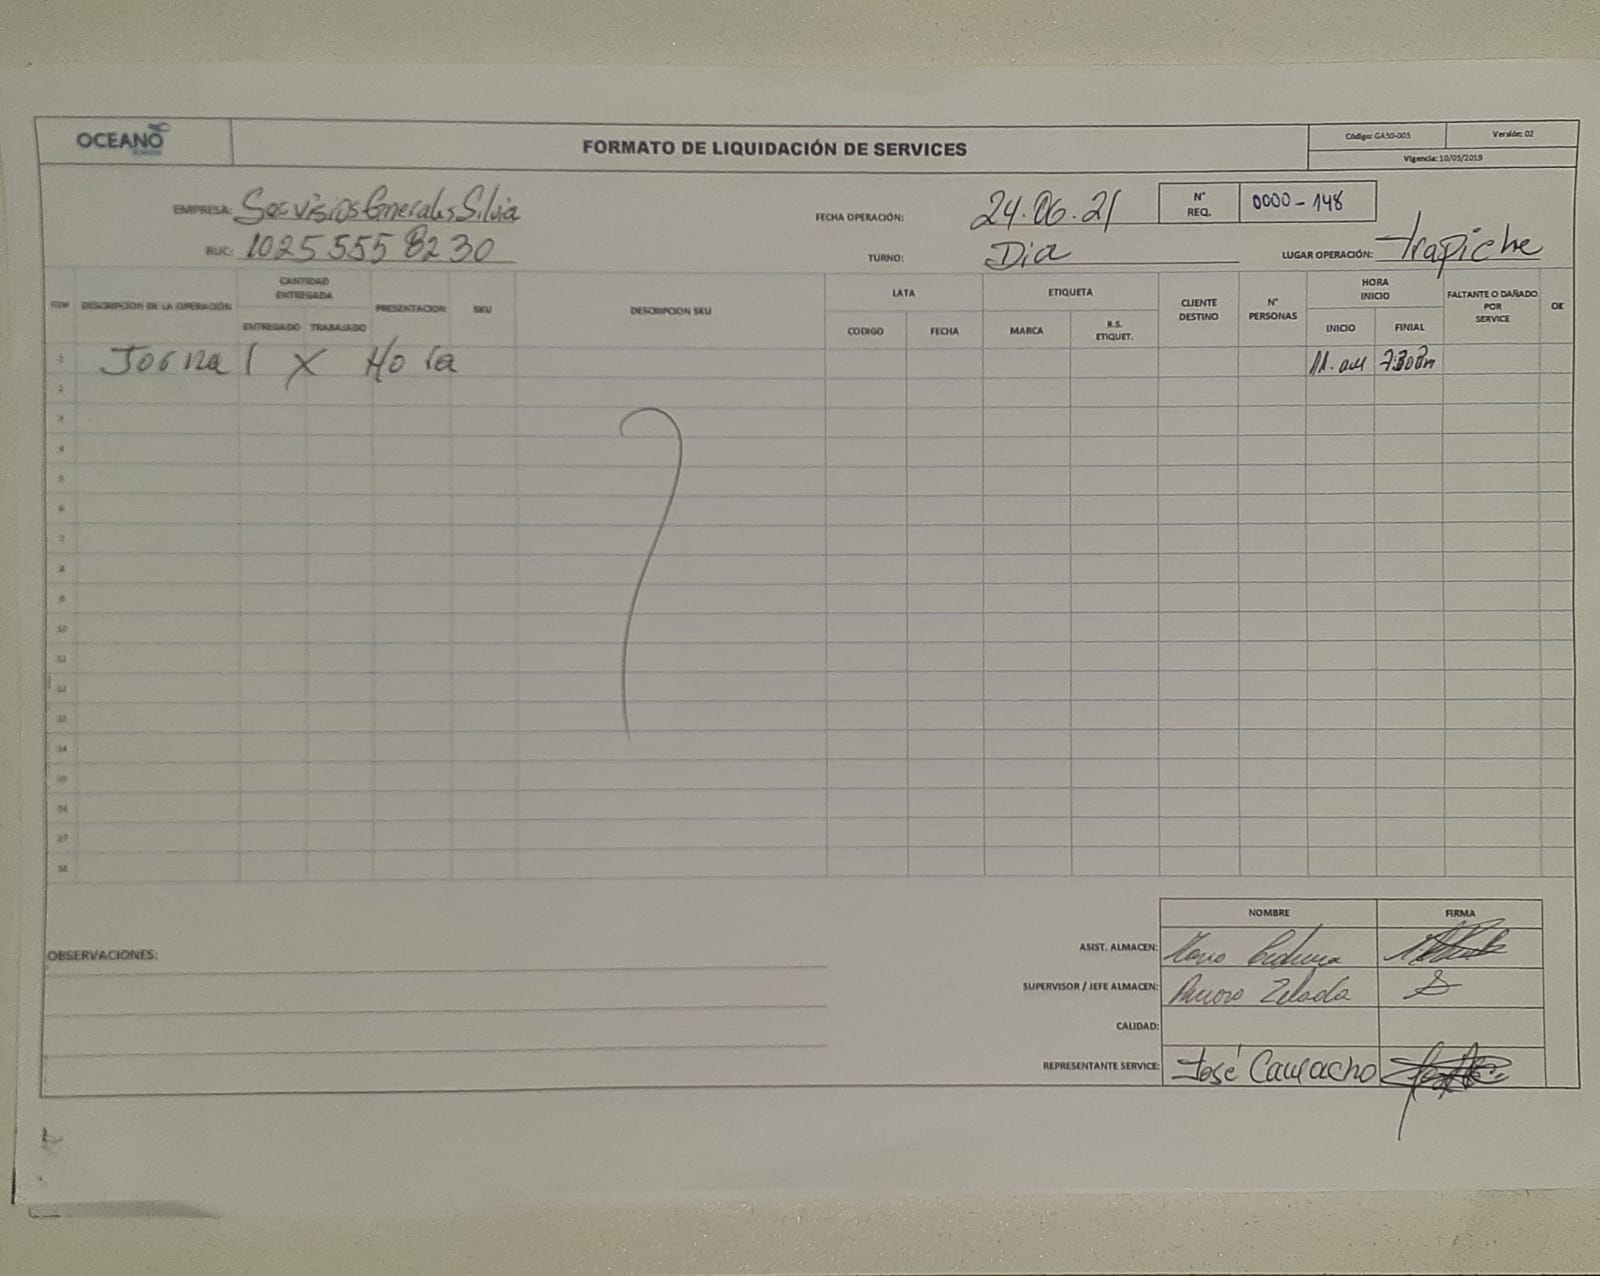 OCEANO
FORMATO DE LIQUIDACIÓN DE SERVICES
Código: GASO-005
Versión: 02
Vigencia: 10/05/2019
EMPRESA: Servisios Generales Silvia
FECHA OPERACIÓN: 24.06.21
N° REQ. 0000-148
RUC: 10255558230
TURNO: Dia
LUGAR OPERACIÓN: Trapiche
ITEM
DESCRIPCION DE LA OPERACIÓN
CANTIDAD ENTREGADA
ENTREGADO
TRABAJADO
PRESENTACION
SKU
DESCRIPCION SKU
LATA
CODIGO
FECHA
ETIQUETA
MARCA
R.S. ETIQUET.
CLIENTE DESTINO
N° PERSONAS
HORA INICIO
INICIO
FINIAL
FALTANTE O DAÑADO POR SERVICE
OK
1 Jornal X Hora 11. am 7:30 Pm
2
3
4
5
6
7
8
9
10
11
12
13
14
15
16
17
18
OBSERVACIONES:
NOMBRE
FIRMA
ASIST. ALMACEN:
SUPERVISOR / JEFE ALMACEN: Zelada
CALIDAD:
REPRESENTANTE SERVICE: José Camacho